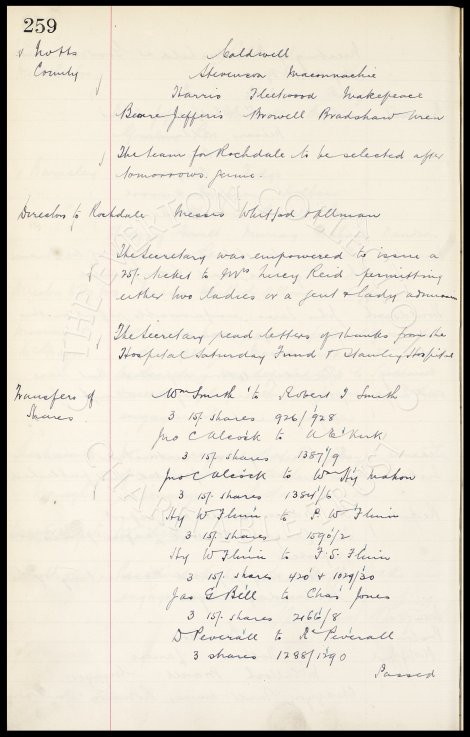 259
v Notts County
Caldwell
Stevenson Maconnachie
Harris Fleetwood Makepeace
Beare Jefferis Browell Bradshaw Wren
The team for Rochdale to be selected after
tomorrows game.
Directors to Rochdale Messrs Whitford & Allman
The Secretary was empowered to issue a
25/- ticket to Mrs Lucy Reid permitting
either two ladies or a gent & lady admission
The Secretary read letters of thanks from the
Hospital Saturday Fund & Stanley Hospital
Transfers of Shares
Wm Smith to Robert J Smith
3 15/- shares 926/928
Jno C Alcock to Kirk
3 15/- shares 1387/9
Jno C Alcock to Wm Hy Mahon
3 15/- shares 1384/6
Hy W Flinn to P. W Flinn
3 15/- shares 1590/2
Hy W Flinn to F. S. Flinn
3 15/- shares 420 & 1029/30
Jas G Bell to Chas Jones
3 15/- shares 2166/8
D Peverall to Rt Peverall
3 shares 1288/1290
Passed